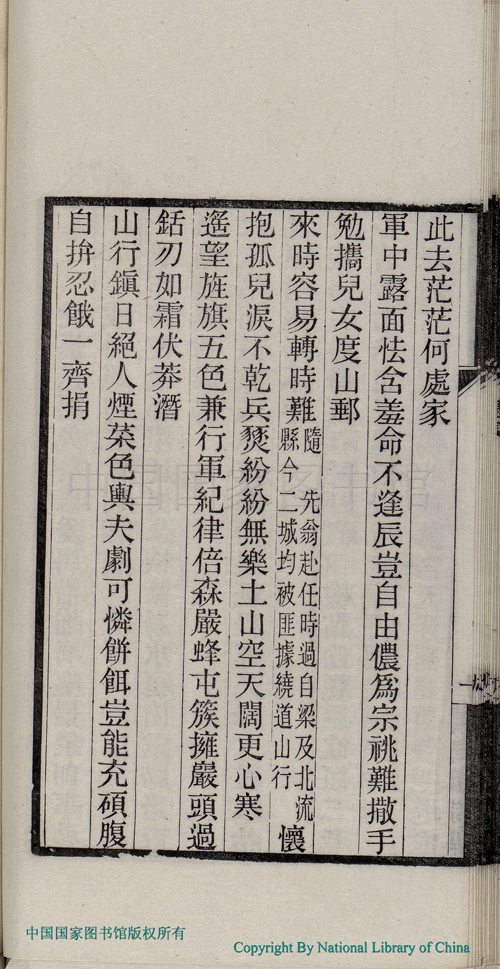 此去茫茫何處家
軍中露面怯含羞命不逢辰豈自由儂爲宗祧難撒手
勉攜兒女度山郵
來時容易轉時難隨　先翁赴任時過自梁及北流
縣今二城均被匪據繞道山行懷
抱孤兒淚不乾兵燹紛紛無樂土山空天闊更心寒
遙望旌旗五色兼行軍紀律倍森嚴蜂屯簇擁巖頭過
銛刃如霜伏莽潛
山行鎮日絕人煙菜色輿夫劇可憐餅餌豈能充碩腹
自拚忍餓一齊捐
中国国家图书馆
中国国家图书馆版权所有
Copyright By National Library of China